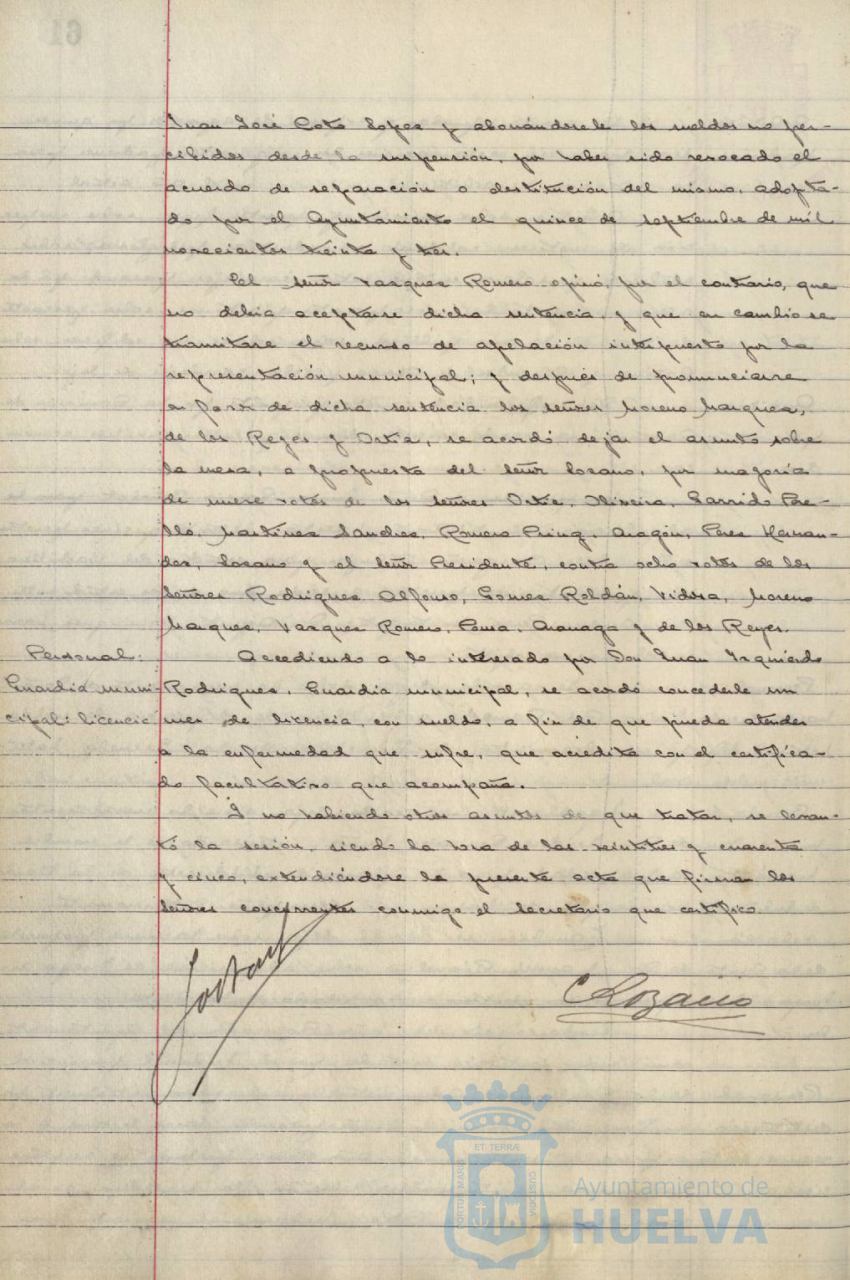 Juan José Coto Lopez y abonándosele los sueldos no per-
cibidos desde la suspensión, por haber sido revocado el
acuerdo de separación o destitución del mismo, adopta-
do por el Ayuntamiento el quince de septiembre de mil
novecientos treinta y tres.
El señor Vazquez Romero opinó, por el contrario, que
no debia aceptarse dicha sentencia, y que en cambio se
tramitase el recurso de apelación interpuesto por la
representación municipal; y después de pronunciarse
a favor de dicha sentencia los señores Moreno Marquez,
de los Reyes y Ortiz, se acordó dejar el asunto sobre
la mesa, a propuesta del señor Lozano, por mayoría
de nueve votos de los señores Ortiz, Oliveira, Garrido Pere-
lló, Martínez Sanchez, Romero Pring, Aragón, Perez Hernan-
dez, Lozano y el señor Presidente, contra ocho votos de los
señores Rodriguez Alfonso, Gomez Roldán, Vidosa, Moreno
Marquez, Vazquez Romero, Ponce, Aranaga y de los Reyes.
Personal:
Guardia muni-
cipal: licencia
Accediendo a lo interesado por Don Juan Izquierdo
Rodriguez, Guardia municipal, se acordó concederle un
mes de licencia, con sueldo, a fin de que pueda atender
a la enfermedad que sufre, que acredita con el certifica-
do facultativo que acompaña.
Y no habiendo otros asuntos de que tratar, se levan-
tó la sesión, siendo la hora de las veintitres y cuarenta
y cinco, extendiéndose la presente acta que firman los
señores concurrentes conmigo el Secretario que certifico.
CLozano
PORTUS MARIS
ET TERRÆ
CUSTODIA
Ayuntamiento de
HUELVA